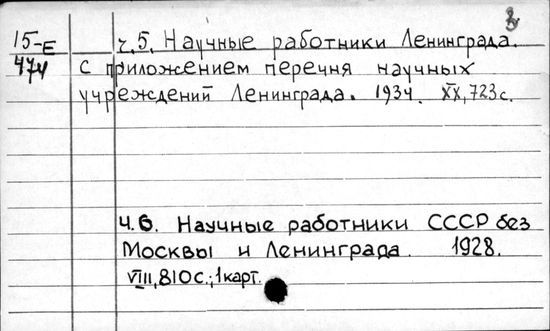 3
15-Е ч.5. Научные работники Ленинграда.
474 с приложением перечня научных
учреждений Ленинграда. 1934. XX,723с.
Ч.6. Научные работники СССР без
Москвы и Ленинграда. 1928.
VIII,810с.;1карт.